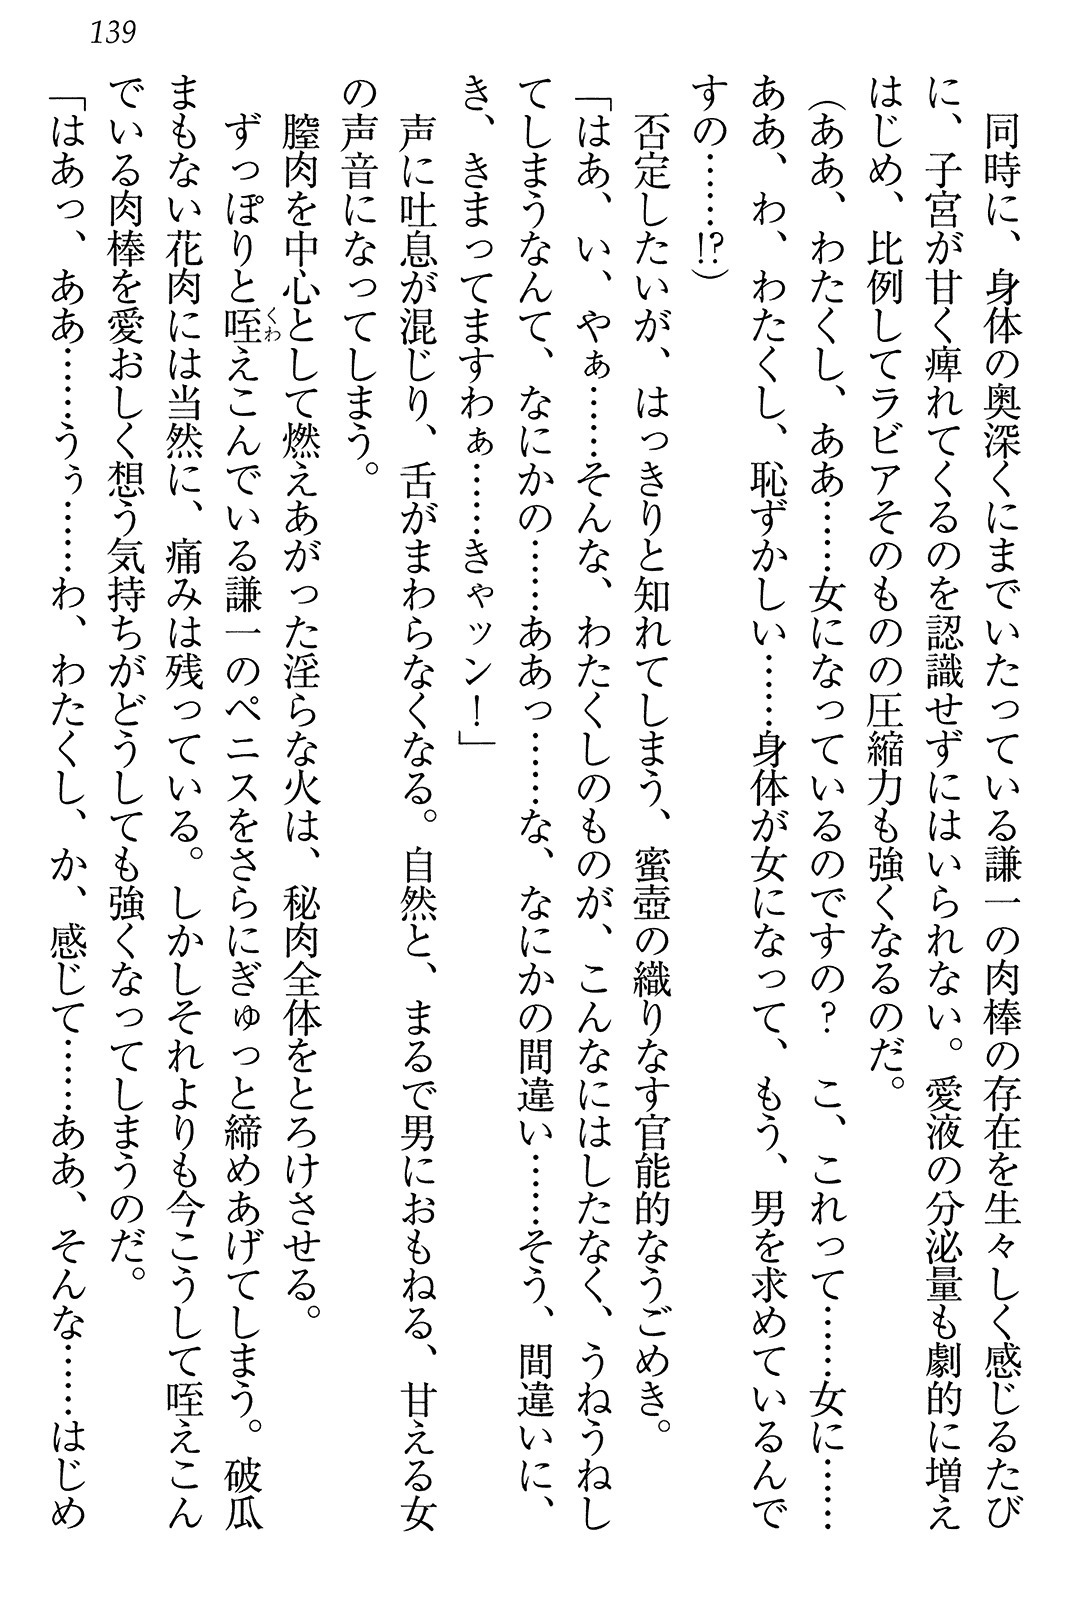 139
同時に、身体の奥深くにまでいたっている謙一の肉棒の存在を生々しく感じるたび
に、子宮が甘く痺れてくるのを認識せずにはいられない。愛液の分泌量も劇的に増え
はじめ、比例してラビアそのものの圧縮力も強くなるのだ。
（ああ、わたくし、ああ……女になっているのですの？　こ、これって……女に……
ああ、わ、わたくし、恥ずかしい……身体が女になって、もう、男を求めているんで
すの……!?）
否定したいが、はっきりと知れてしまう、蜜壺の織りなす官能的なうごめき。
「はあ、い、やぁ……そんな、わたくしのものが、こんなにはしたなく、うねうねし
てしまうなんて、なにかの……ああっ……な、なにかの間違い……そう、間違いに、
き、きまってますわぁ……きゃッン！」
声に吐息が混じり、舌がまわらなくなる。自然と、まるで男におもねる、甘える女
の声音になってしまう。
膣肉を中心として燃えあがった淫らな火は、秘肉全体をとろけさせる。
ずっぽりと咥えこんでいる謙一のペニスをさらにぎゅっと締めあげてしまう。破瓜
くわ
まもない花肉には当然に、痛みは残っている。しかしそれよりも今こうして咥えこん
でいる肉棒を愛おしく想う気持ちがどうしても強くなってしまうのだ。
「はあっ、ああ……うぅ……わ、わたくし、か、感じて……ああ、そんな……はじめ